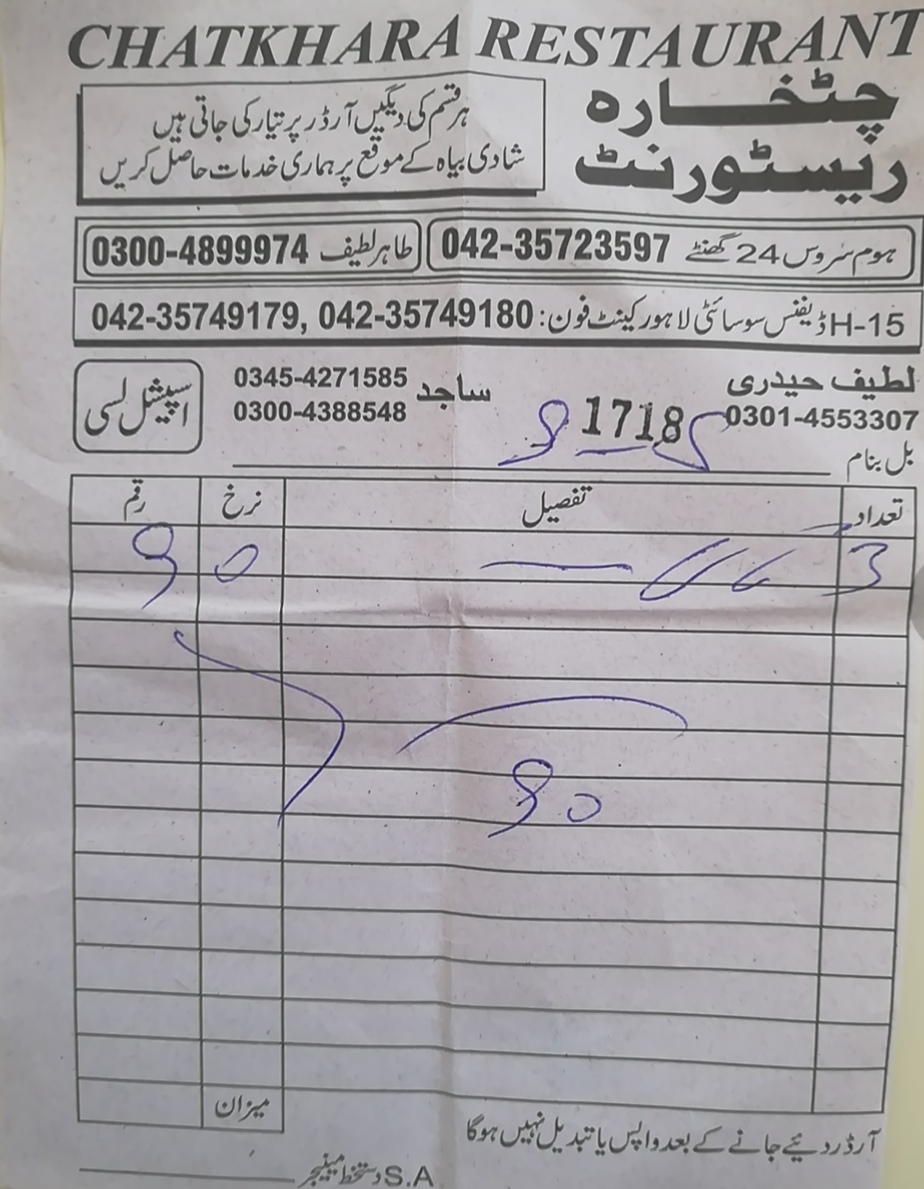 CHATKHARA RESTAURANT
چٹخارہ
ریسٹورنٹ
ہر قسم کی دیگیں آرڈر پر تیار کی جاتی ہیں
شادی بیاہ کے موقع پر ہماری خدمات حاصل کریں
ہوم سروس 24 گھنٹے 042-35723597
طاہر لطیف 0300-4899974
H-15 ڈیفنس سوسائٹی لاہور کینٹ فون: 042-35749179, 042-35749180
لطیف حیدری
0301-4553307
ساجد 0345-4271585
0300-4388548
اسپیشل لسی
1718
بل بنام
تعداد تفصیل نرخ رقم
3 90
90
میزان
آرڈر دئیے جانے کے بعد واپس یا تبدیل نہیں ہوگا
S.A دستخط مینیجر